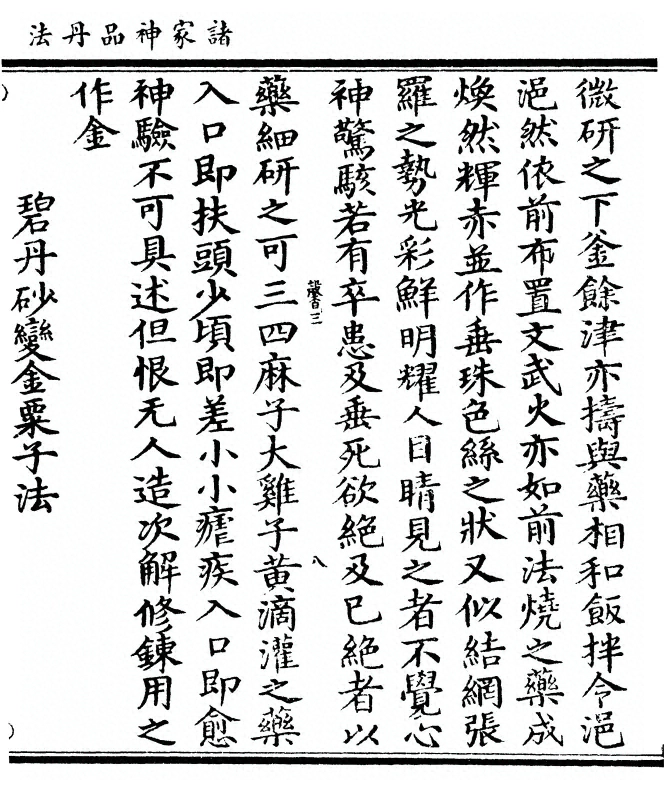 諸家神品丹法
微研之下釜餘津亦擣與藥相和飯拌令浥
浥然依前布置文武火亦如前法燒之藥成
煥然輝赤並作垂珠色絲之狀又似結網張
羅之勢光彩鮮明耀人目睛見之者不覺心
神驚駭若有卒患及垂死欲絕及已絕者以
藥細研之可三四麻子大雞子黃滴灌之藥
入口即扶頭少頃即差小小瘧疾入口即愈
神驗不可具述但恨无人造次解修鍊用之
作金
碧丹砂變金粟子法
八